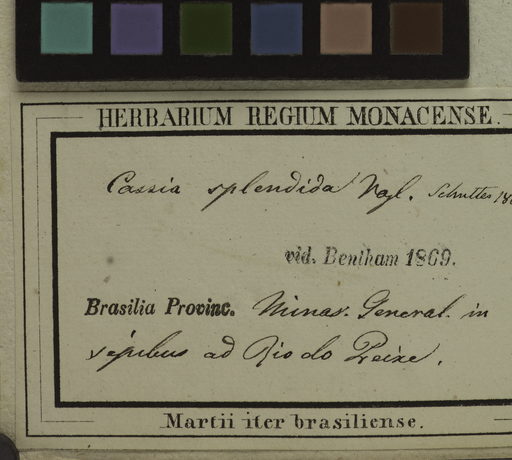 HERBARIUM REGIUM MONACENSE.
Cassia splendida Vogl. Schuttes
vid. Bentham 1869.
Brasilia Provinc. Minas. General. in
sepibus ad Rio do Peixe.
Martii iter brasiliense.